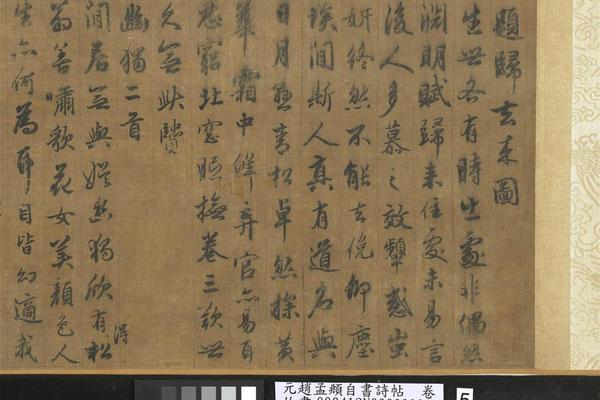 題歸去來圖
生世各有時出處非偶然
淵明賦歸來佳處未易言
後人多慕之效顰惑蚩
妍終然不能去俛仰塵
埃間斯人真有道名與
日月懸青松卓然操黃
華霜中鮮棄官亦易耳
忍窮北窓眠撫卷三歎世
久無此賢
幽獨二首
閒居無與娛幽獨欣有得松
翁善嘯歌花女美顏色人
生亦何為耳目皆幻適我
元趙孟頫自書詩帖 卷
5